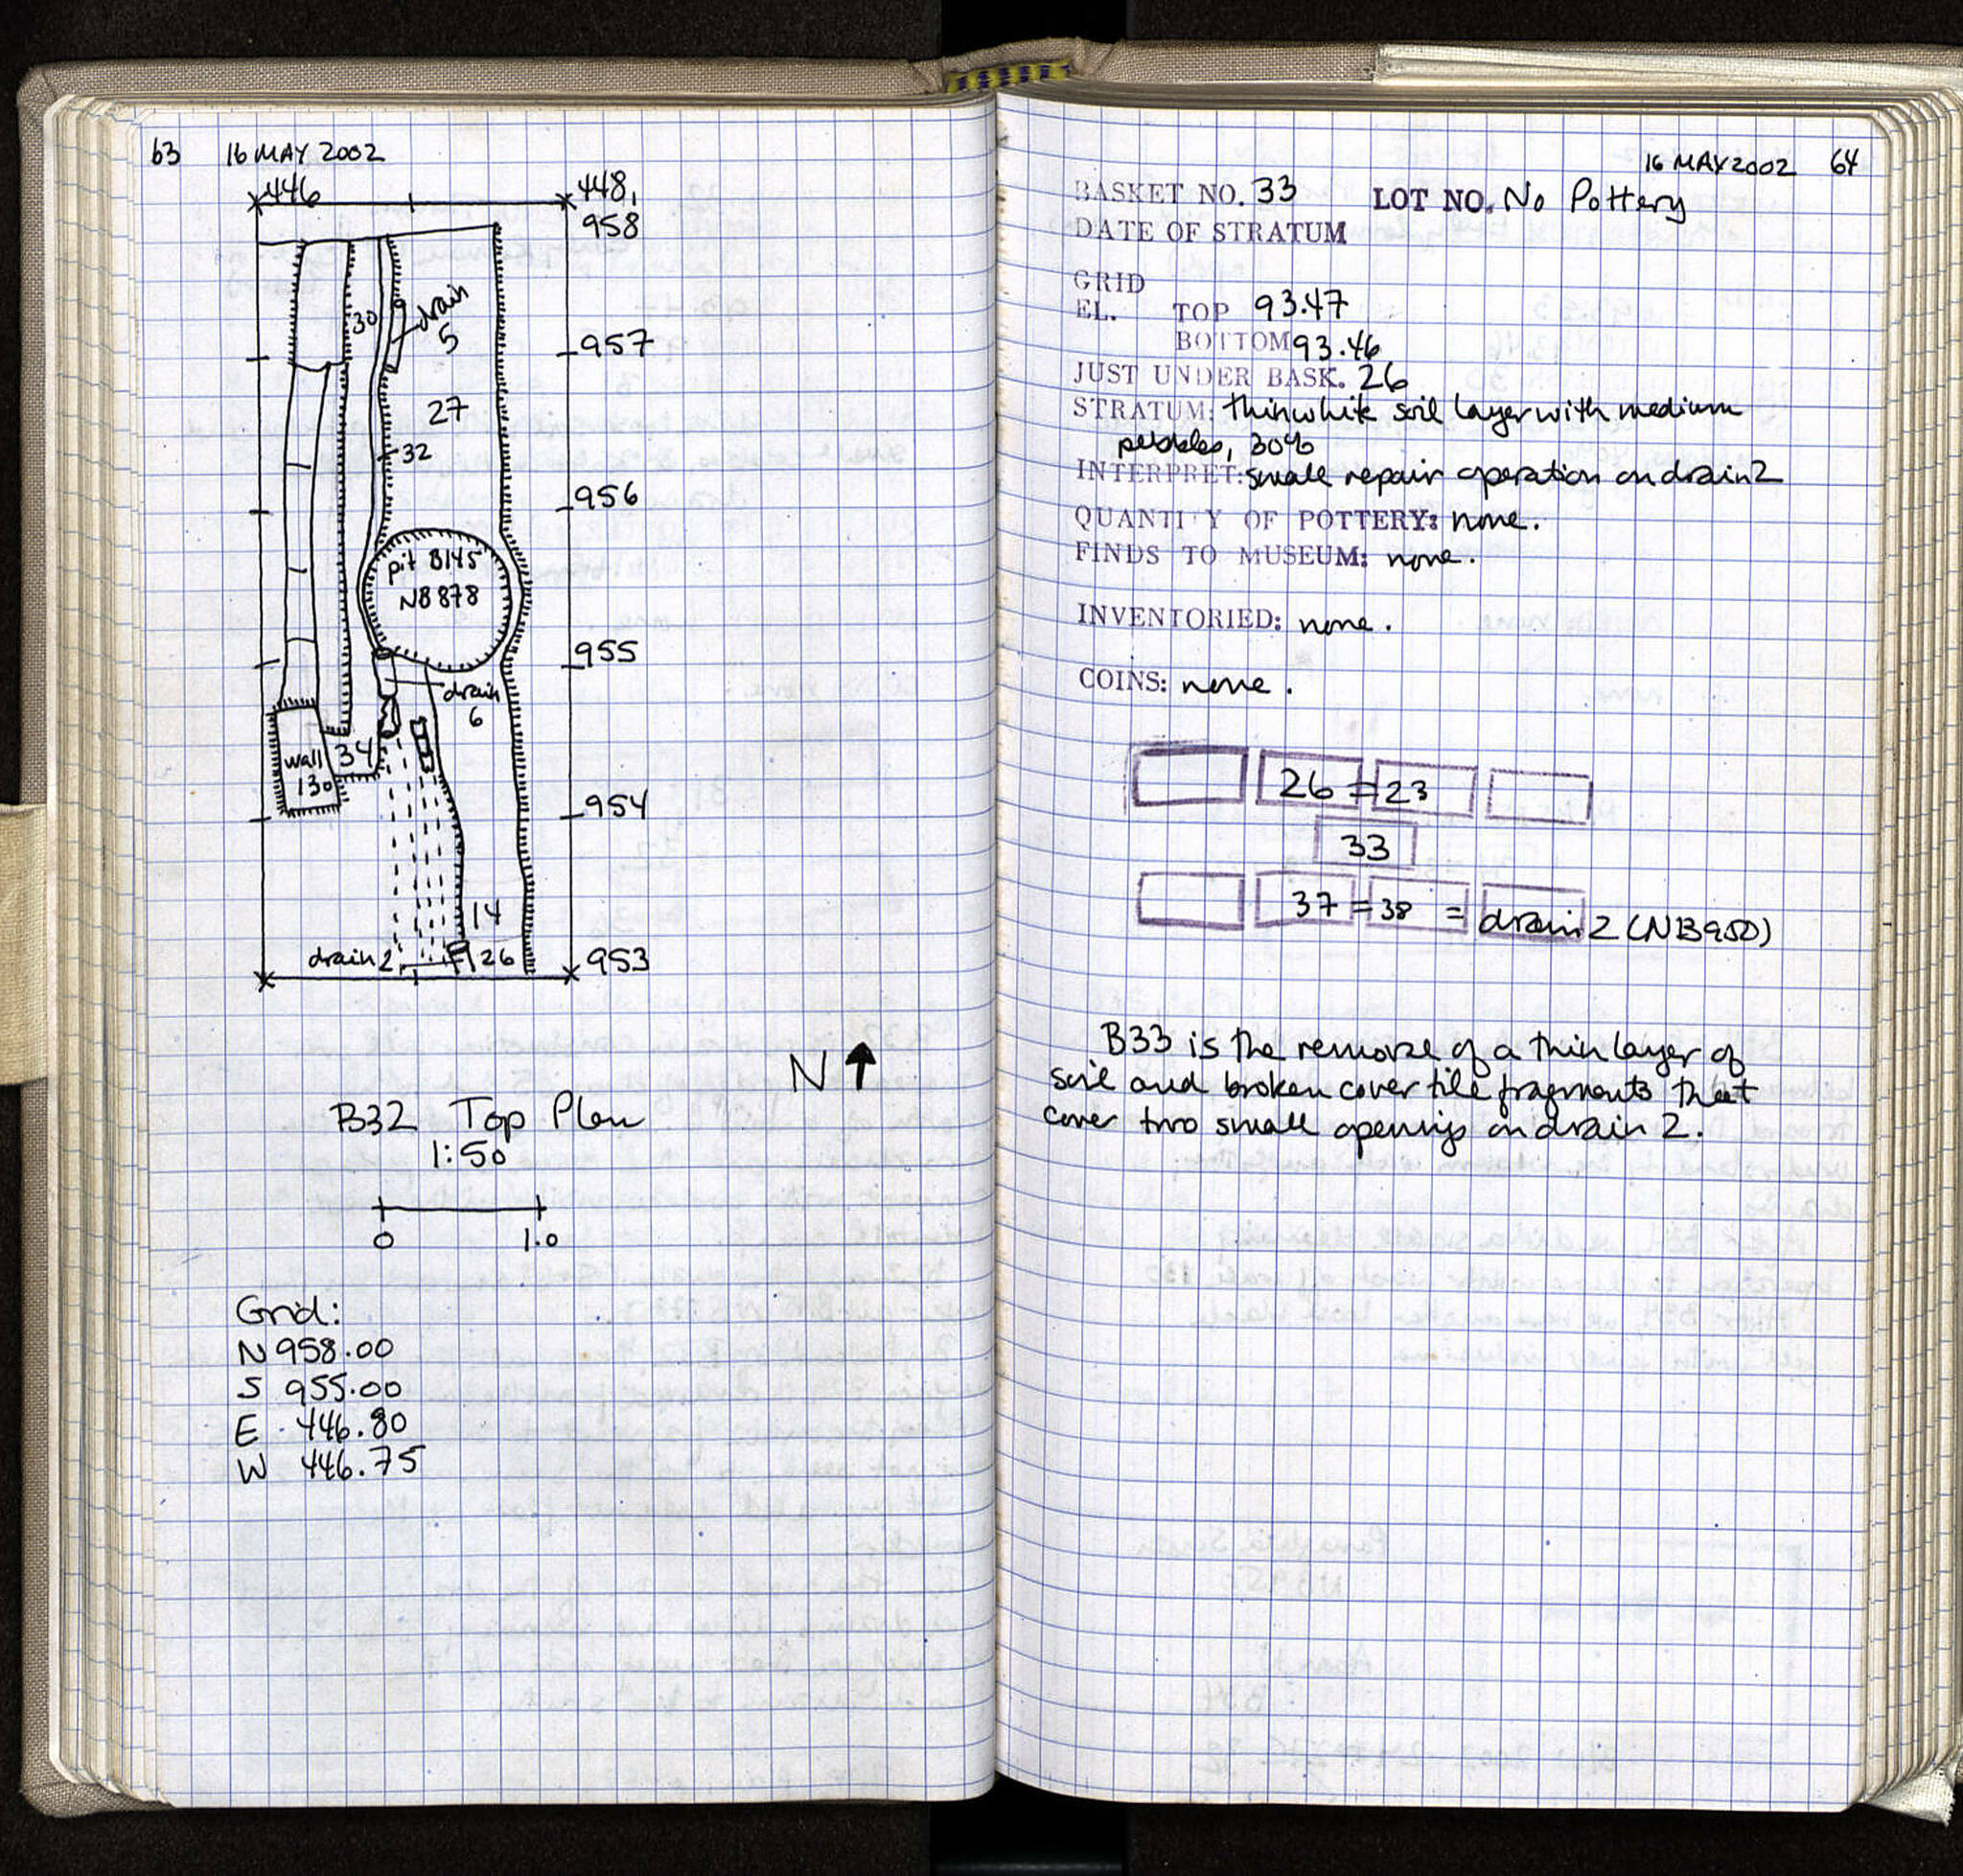 63 16 MAY 2002
446 448,
958
30
drain
5
957
27
32
956
pit B145
NB 878
955
drain
6
wall 34
130
954
14
drain 2 26 953
N
B32 Top Plan
1:50
0 1.0
Grid:
N 958.00
S 955.00
E 446.80
W 446.75
16 MAY 2002 64
BASKET NO. 33 LOT NO. No Pottery
DATE OF STRATUM
GRID
EL. TOP 93.47
BOTTOM 93.46
JUST UNDER BASK. 26
STRATUM: thin white soil layer with medium
pebbles, 30%
INTERPRET: small repair operation on drain 2
QUANTITY OF POTTERY: none.
FINDS TO MUSEUM: none.
INVENTORIED: none.
COINS: none.
26 = 23
33
37 = 38 = drain 2 (NB950)
B33 is the removal of a thin layer of
soil and broken cover tile fragments that
cover two small openings on drain 2.